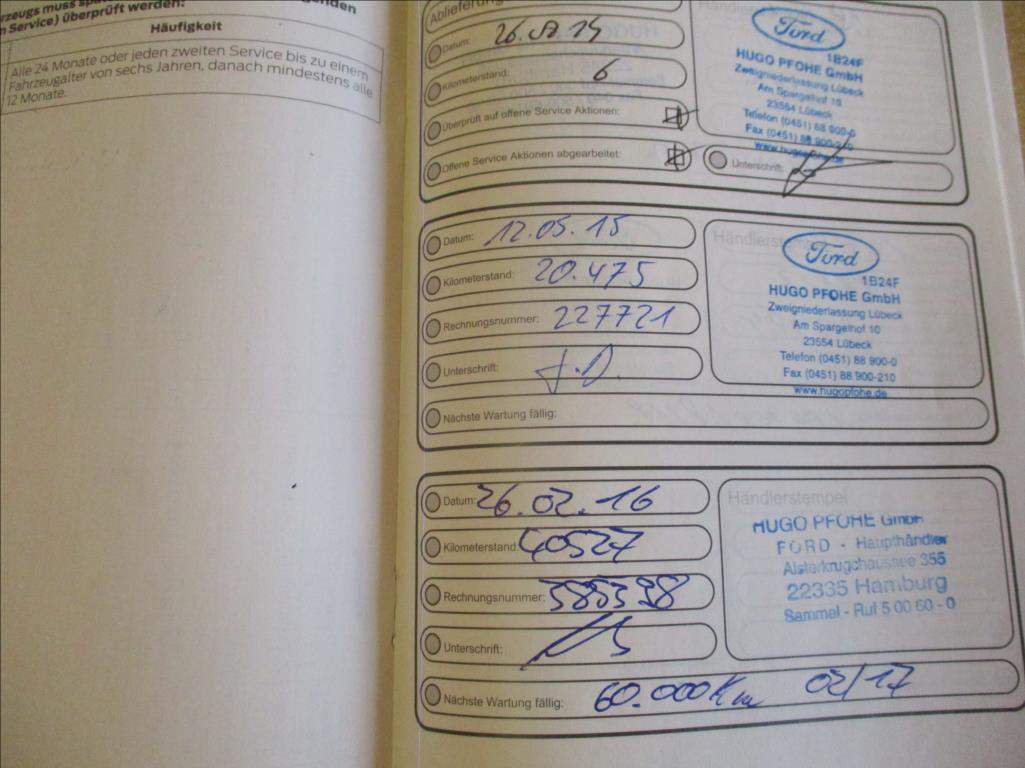 rzeugs muss spä
genden
n Service) überprüft werden:
Häufigkeit
Alle 24 Monate oder jeden zweiten Service bis zu einem
Fahrzeugalter von sechs Jahren, danach mindestens alle
12 Monate.
Ablieferung
Datum:
Kilometerstand: 6
Überprüft auf offene Service Aktionen:
Offene Service Aktionen abgearbeitet:
Ford
1B24F
HUGO PFOHE GmbH
Zweigniederlassung Lübeck
Am Spargelhof 10
23554 Lübeck
Telefon (0451) 88 900-0
Fax (0451) 88 900-210
www.hugopfohe.de
Unterschrift:
Datum: 12.05.15
Kilometerstand: 20.475
Rechnungsnummer: 227721
Unterschrift:
Nächste Wartung fällig:
Händlerstempel
Ford
1B24F
HUGO PFOHE GmbH
Zweigniederlassung Lübeck
Am Spargelhof 10
23554 Lübeck
Telefon (0451) 88 900-0
Fax (0451) 88 900-210
www.hugopfohe.de
Datum: 26.02.16
Kilometerstand: 40527
Rechnungsnummer:
Unterschrift:
Nächste Wartung fällig: 60.000 Km 02/17
Händlerstempel
HUGO PFOHE GmbH
FORD - Haupthändler
Alsterkrugchaussee 355
22335 Hamburg
Sammel - Ruf 5 00 60 - 0